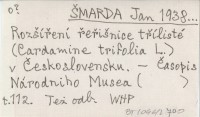 o? ŠMARDA Jan 1938...
Rozšíření řeřišnice třílisté
(Cardamine trifolia L.)
v Československu. – Časopis
Národního Musea (      )
t.112. Též odb. WHP